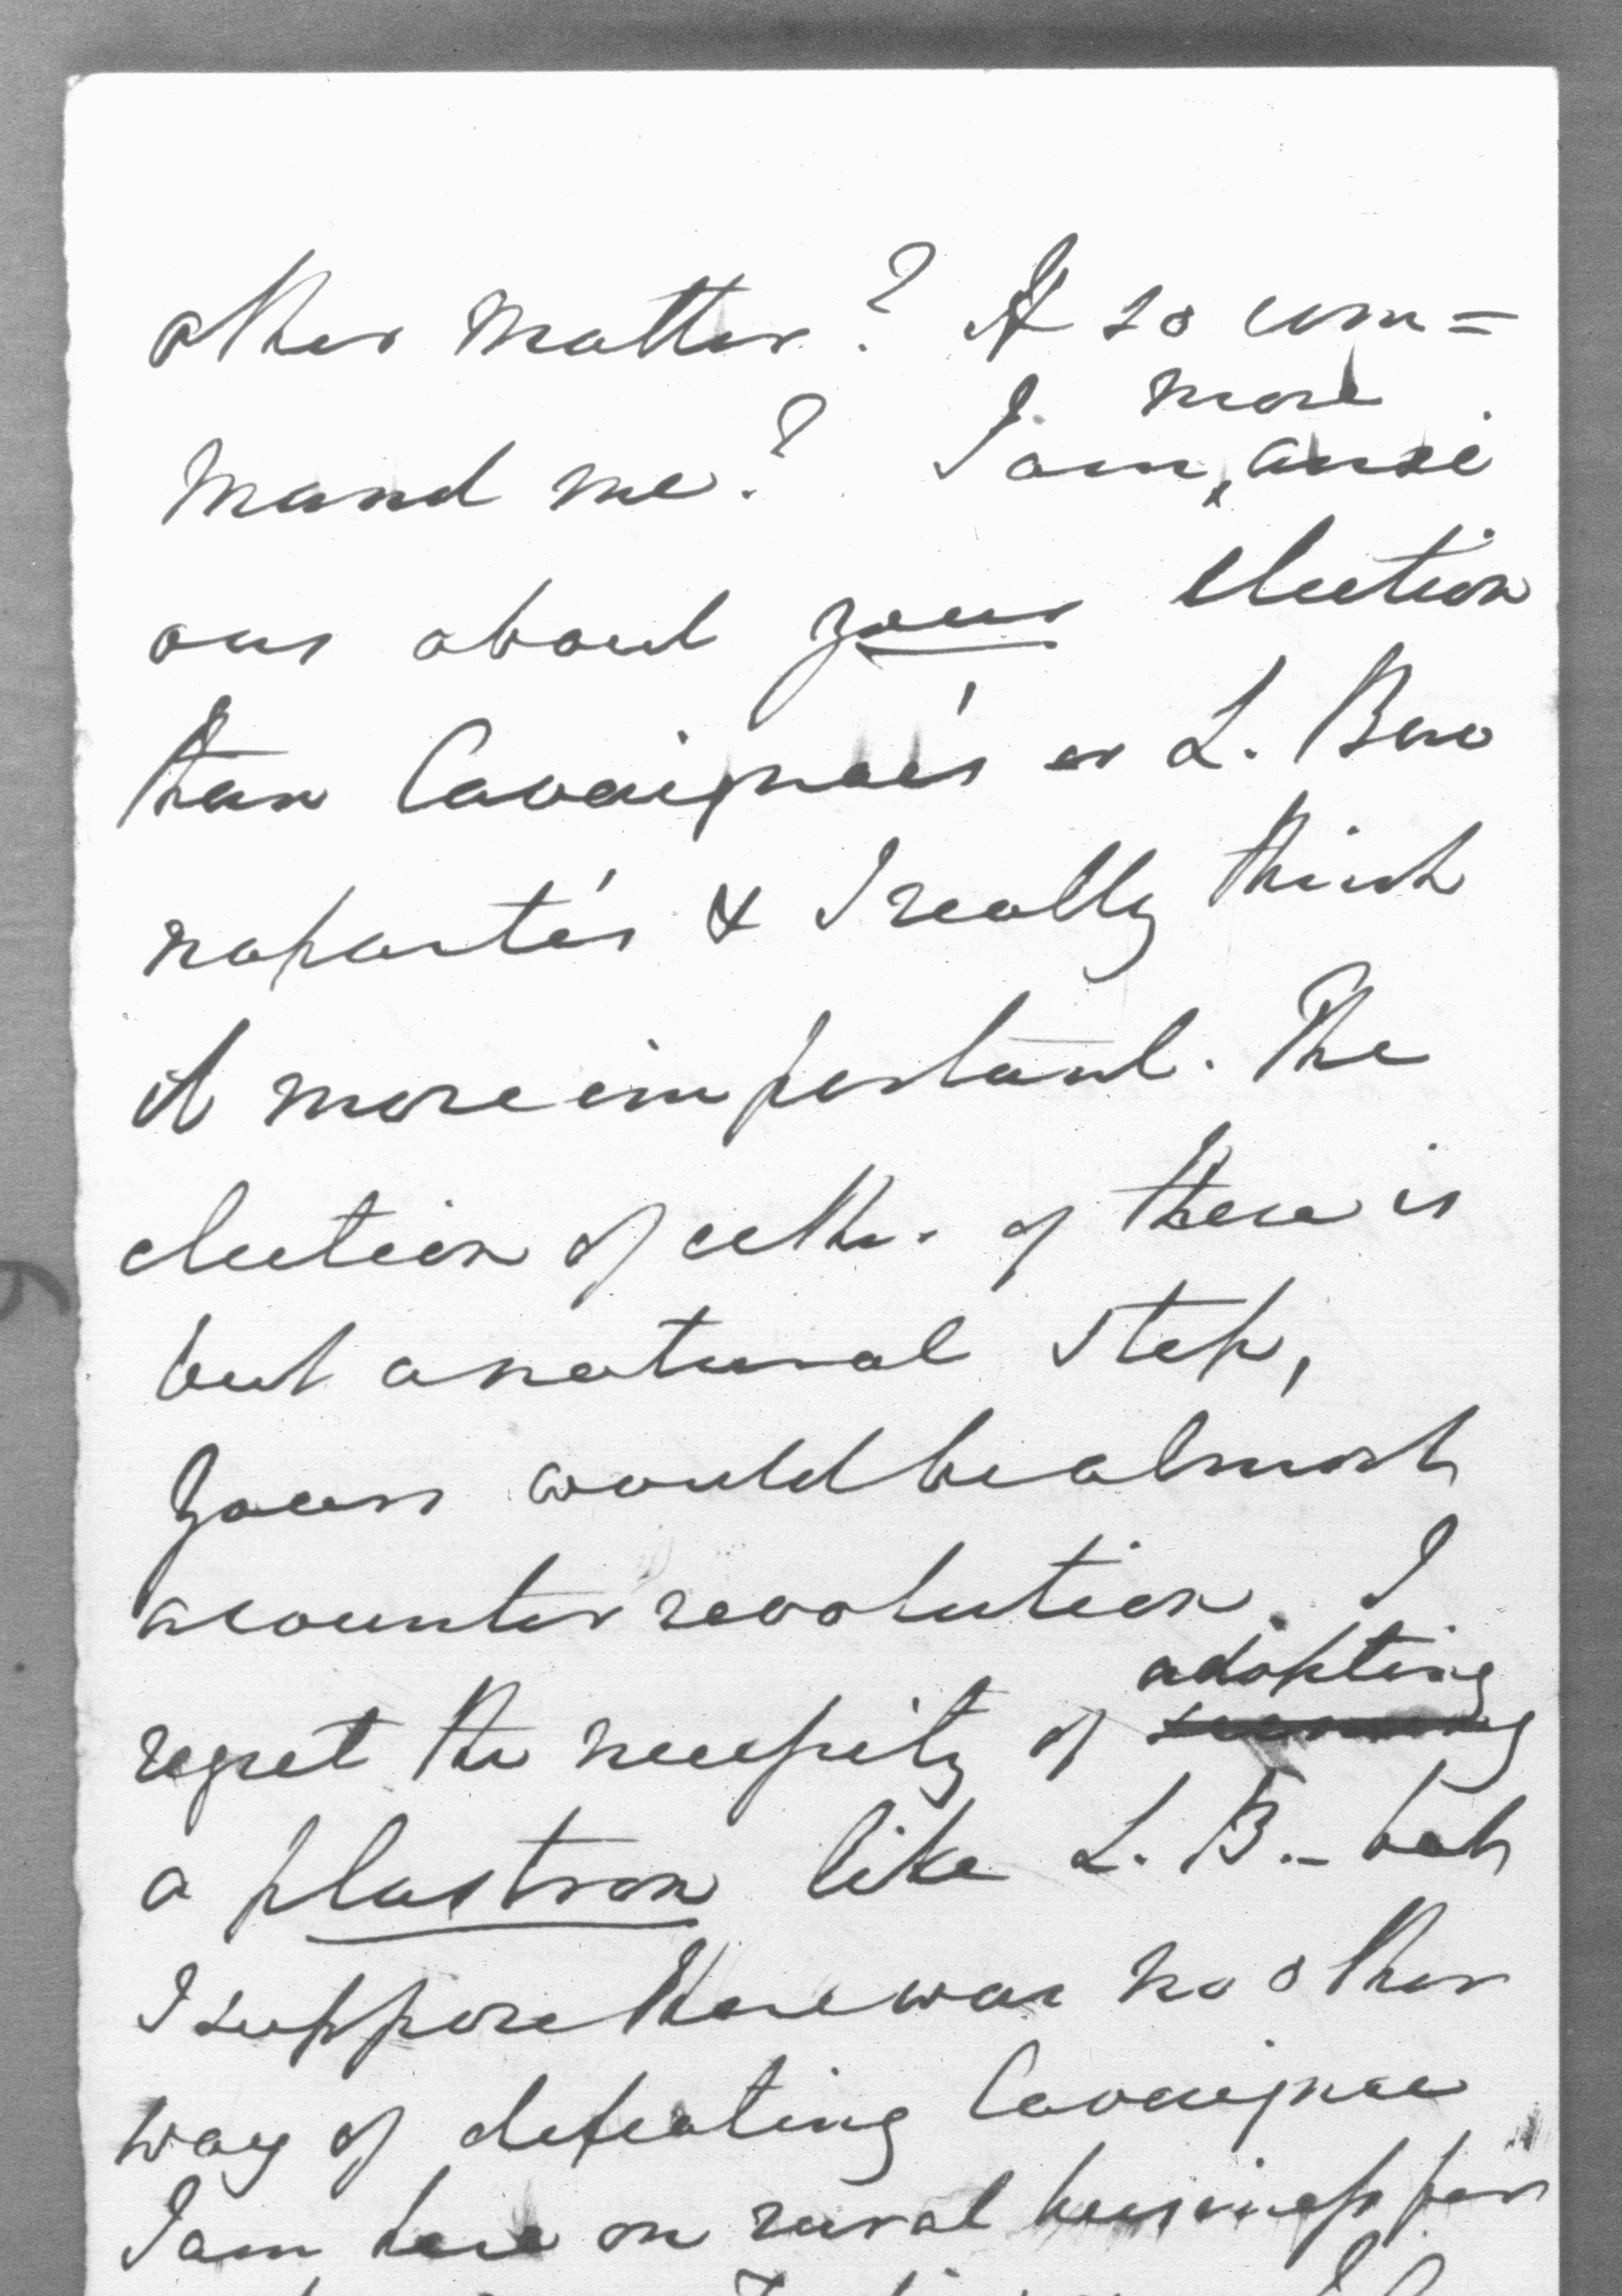 other matter? If so com=
mand me? I am more anxi
ous about your election
than Cavaignac's or L. Buo
naparte's & I really think
it more important. The
election of eithr. of these is
but a natural step,
Yours would be almost
a counter revolution. I
regret the necessity of adopting
a plastron like L. B. – but
I suppose there was no other
way of defeating Cavaignac
I am here on rural business for